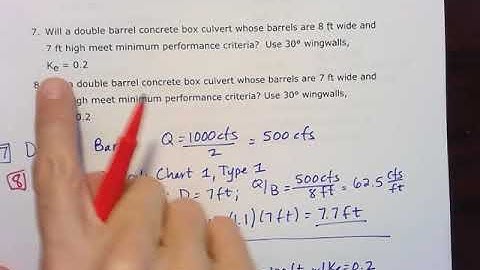 7. Will a double barrel concrete box culvert whose barrels are 8 ft wide and
7 ft high meet minimum performance criteria? Use 30° wingwalls,
Ke = 0.2
8 a double barrel concrete box culvert whose barrels are 7 ft wide and
high meet minimum performance criteria? Use 30° wingwalls,
0.2
7 D Bar Q = 1000cfs / 2 = 500cfs
8 Chart 1, Type 1
D = 7ft; Q/B = 500cfs / 8ft = 62.5 cfs/ft
.1)(7ft) = 7.7ft
= 0.2